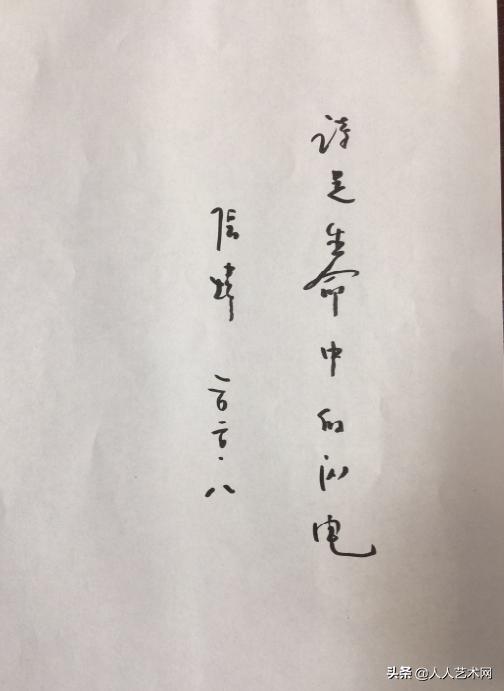 诗是生命中的闪电
张炜 二〇二〇·八
头条 @人人艺术网